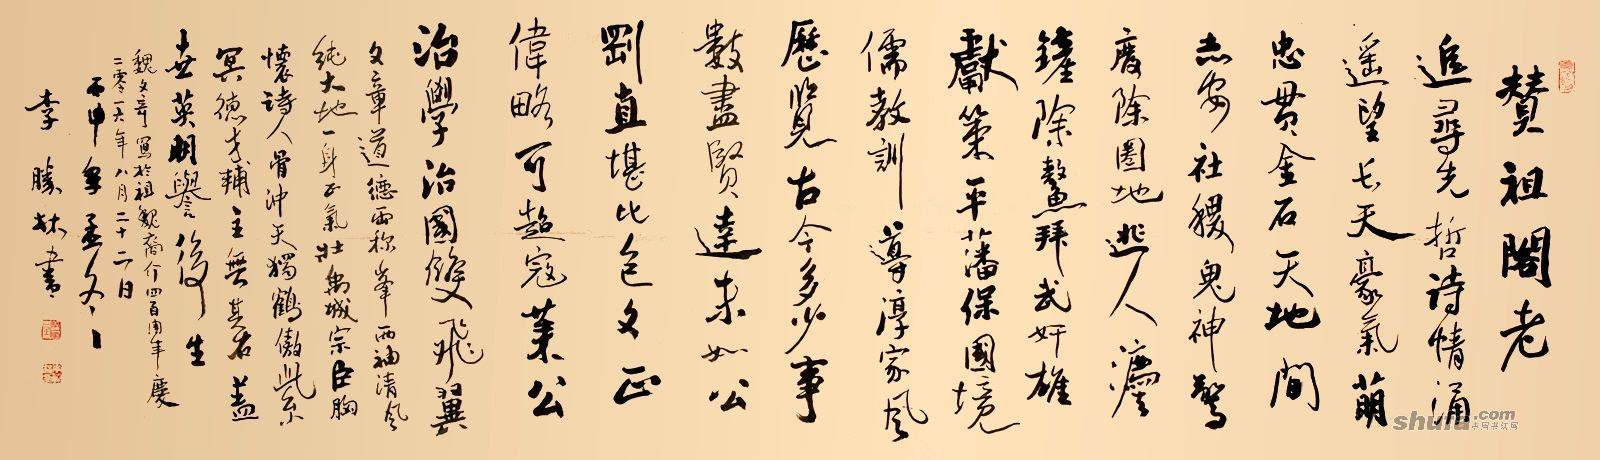 贊祖閣老
追尋先哲詩情涌
遥望长天豪氣萌
忠贯金石天地間
志安社稷鬼神驚
廢除圈地逃人灋
鏟除鰲拜武奸雄
獻策平藩保國境
儒教訓導淳家風
歷覽古今多少事
數盡賢達未如公
剛直堪比包文正
偉略可超寇莱公
治學治國雙飛翼
文章道德兩称峯 两袖清風
純大地一身正氣壮禹城宗臣胸
懷詩人骨沖天獨鶴傲
冥德才輔主無其右盖
世英明譽後生
魏文奇寫於祖魏裔介四百周年慶
二零一六年八月二十二日
丙申年孟冬
李勝林書
shufa.com